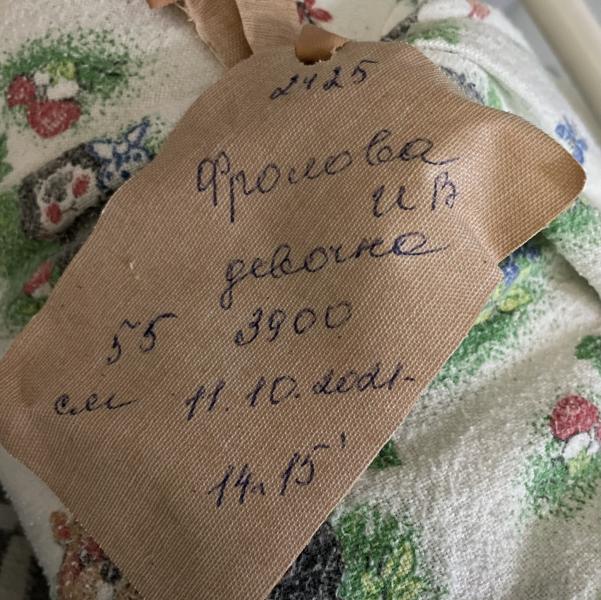 2425
Фролова
И В
девочка
55 3900
см 11.10.2021г
14ч15'